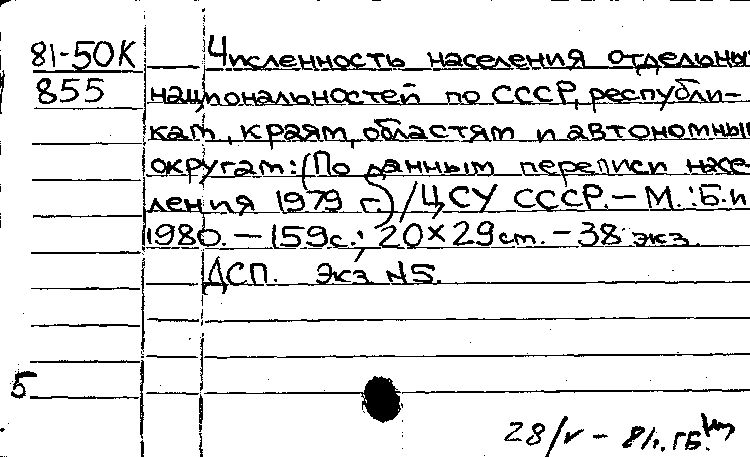 81-50К
855
Численность населения отдельны
национальностей по СССР, республи-
кам, краям, областям и автономны
округам: (По данным переписи насе-
ления 1979 г.) / ЦСУ СССР. - М.: Б.и
1980. - 159с.; 20×29см. - 38 экз.
ДСП. Экз. №5.
5
28/V - 81г. ГБ.